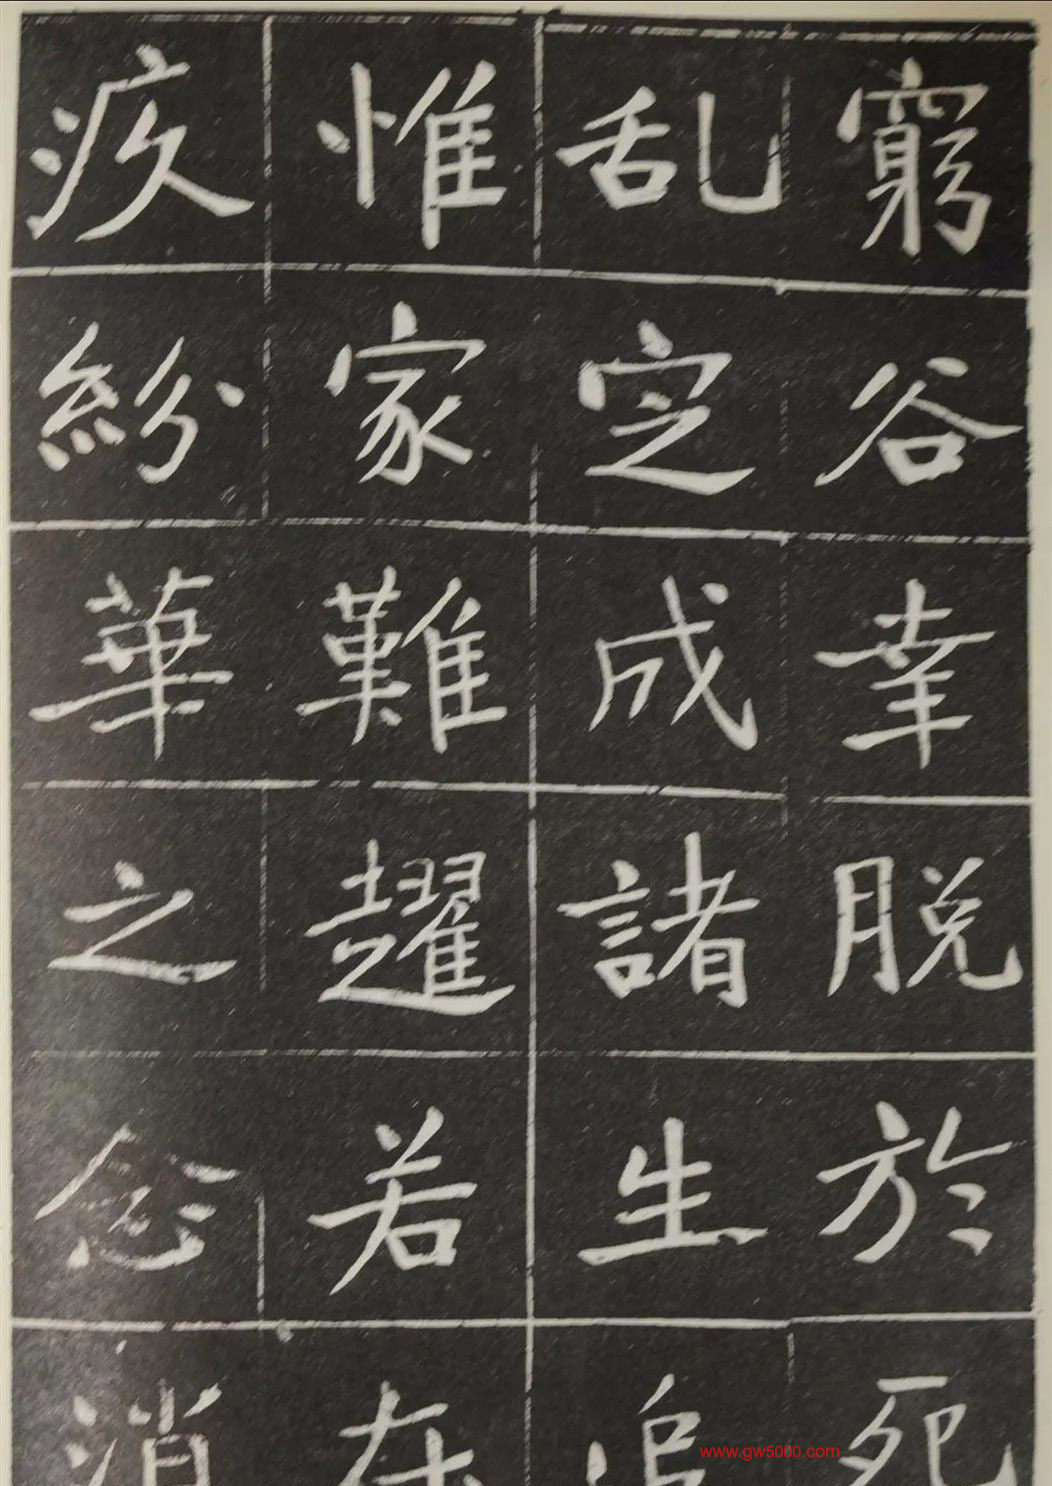 窮谷幸脱於死
乱定成諸生追
惟家難趯若在
疚紛華之念消
www.gw5000.com